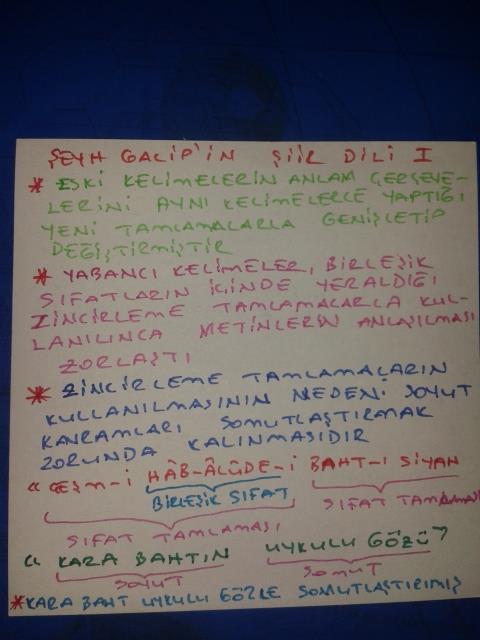 ŞEYH GALİP'İN ŞİİR DİLİ I
* ESKİ KELİMELERİN ANLAM ÇERÇEVE-
LERİNİ AYNI KELİMELERLE YAPTIĞI
YENİ TAMLAMALARLA GENİŞLETİP
DEĞİŞTİRMİŞTİR
* YABANCI KELİMELER, BİRLEŞİK
SIFATLARIN İÇİNDE YERALDIĞI
ZİNCİRLEME TAMLAMALARLA KUL-
LANILINCA METİNLERİN ANLAŞILMASI
ZORLAŞTI
* ZİNCİRLEME TAMLAMALARIN
KULLANILMASININ NEDENİ SOYUT
KAVRAMLARI SOMUTLAŞTIRMAK
ZORUNDA KALINMASIDIR
"ÇEŞM-İ HÂB-ÂLÛDE-İ BAHT-I SİYAH
BİRLEŞİK SIFAT SIFAT TAMLAMASI
SIFAT TAMLAMASI
"KARA BAHTIN UYKULU GÖZÜ"
SOYUT SOMUT
*KARA BAHT UYKULU GÖZLE SOMUTLAŞTIRMIŞ